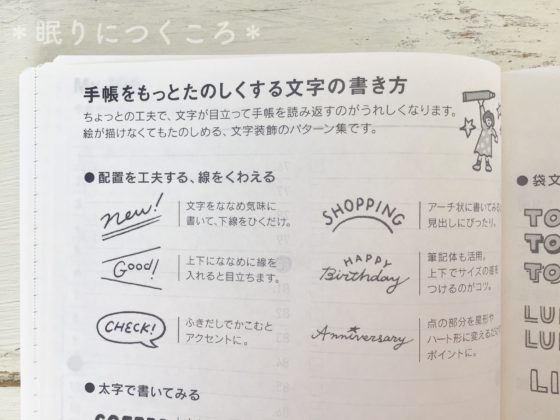 ＊眠りにつくころ＊
手帳をもっとたのしくする文字の書き方
ちょっとの工夫で、文字が目立って手帳を読み返すのがうれしくなります。
絵が描けなくてもたのしめる、文字装飾のパターン集です。
●配置を工夫する、線をくわえる
new!
文字をななめ気味に
書いて、下線をひくだけ。
SHOPPING
アーチ状に書いてみる
見出しにぴったり。
Good!
上下にななめに線を
入れると目立ちます。
HAPPY
Birthday
筆記体も活用。
上下でサイズの差を
つけるのがコツ。
CHECK!
ふきだしでかこむと
アクセントに。
Anniversary
点の部分を星形や
ハート形に変えるだけで
ポイントに。
●太字で書いてみる
●袋文